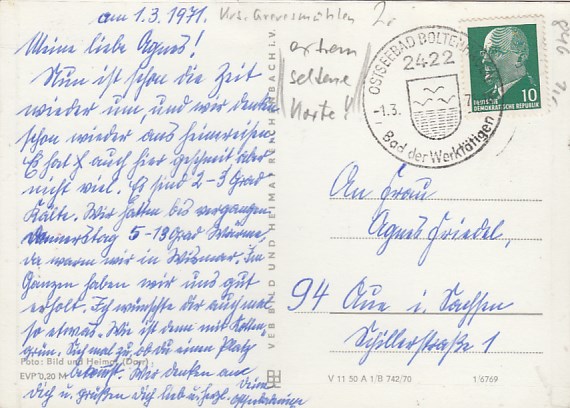 am 1.3.1971.
Krs. Grevesmühlen
Meine liebe Agnes!
Nun ist schon die Zeit
wieder um, und wir denken
schon wieder ans heimreisen.
Es hat auch hier geschneit aber
nicht viel. Es sind 2-3 Grad
Kälte. Wir hatten bis vergangen
Donnerstag 5-13 Grad Wärme,
da waren wir in Wismar. Im
Ganzen haben wir uns gut
erholt. Ich wünschte dir auch mal
so etwas. Wie ist denn mit
grün. Sieh mal zu, ob du einen Platz
bekommst. Wir denken an
dich u. grüßen dich lieb u. herzl. Deine
Foto: Bild und Heimat (Darr)
EVP 0,20 M
VEB BILD UND HEIMAT REICHENBACH I. V.
extrem
seltene
Karte!
OSTSEEBAD BOLTENHAGEN
2422
-1.3.
Bad der Werktätigen
10
DEUTSCHE
DEMOKRATISCHE REPUBLIK
An Frau
Agnes Friedel,
94 Aue i. Sachsen
Schillerstraße 1
V 11 50 A 1/B 742/70
1/6769